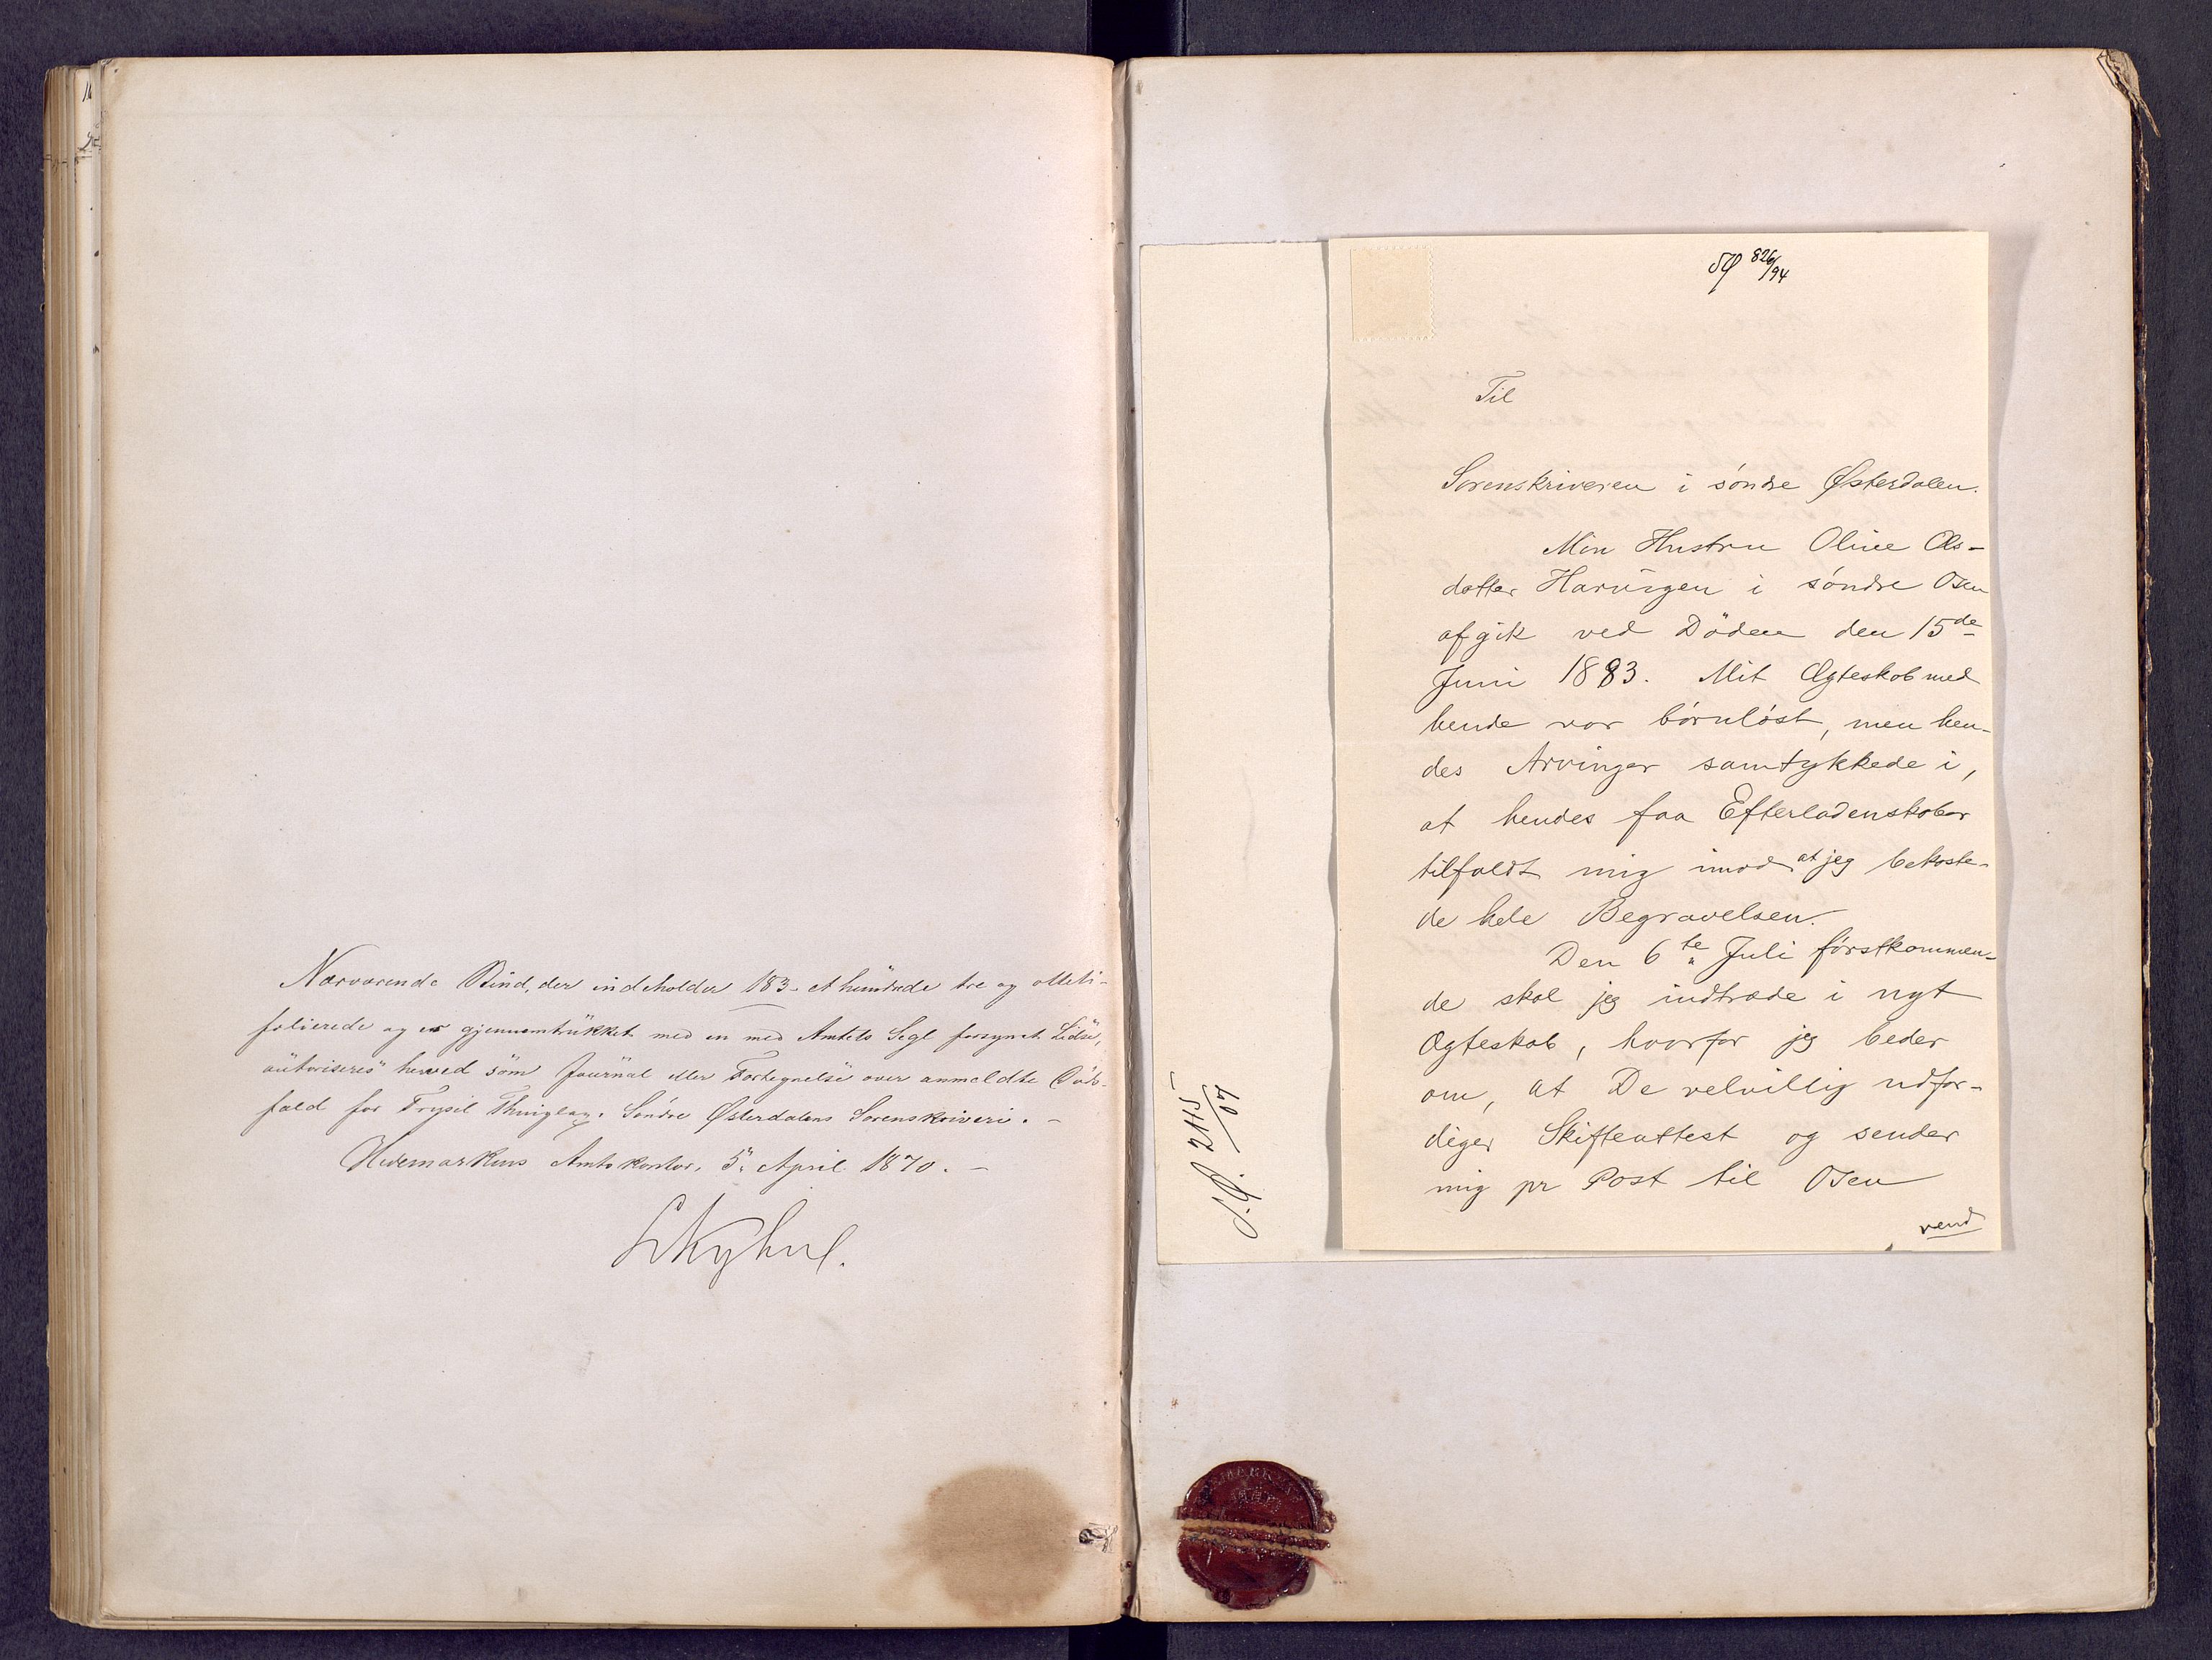 Nærværende Bind, der indeholder 183 - et hundrede tre og otteti -
folierede og er gjennemtrukket med en med Amtets Segl forsynet Lidse,
autoriseres herved som Journal eller Fortegnelse over anmeldte Døds-
fald for Trysil Thinglag. Søndre Østerdalens Sorenskriveri. -
Hedemarkens Amtskontor, 5. April 1870. -
J. Q. 2445/07
826/94
Til
Sorenskriveren i søndre Østerdalen.
Min Hustru Oline Ols-
datter Harvigen i søndre Osen
afgik ved Döden den 15de
Juni 1883. Mit Ægteskab med
hende var börnløst, men hen-
des Arvinger samtykkede i,
at hendes faa Efterladenskaber
tilfaldt mig imod at jeg bekoste-
de hele Begravelsen.
Den 6te Juli förstkommen-
de skal jeg indtræde i nyt
Ægteskab, hvorfor jeg beder
om, at De velvillig udfær-
diger Skifteattest og sender
mig pr Post til Osen
vend